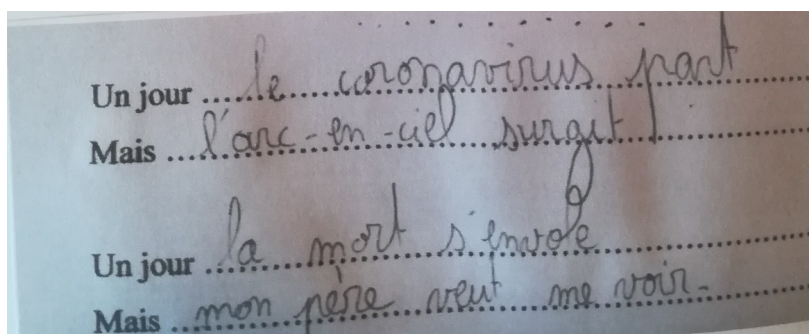 Un jour le coronavirus part
Mais l'arc-en-ciel surgit
Un jour la mort s'envole
Mais mon père veut me voir.